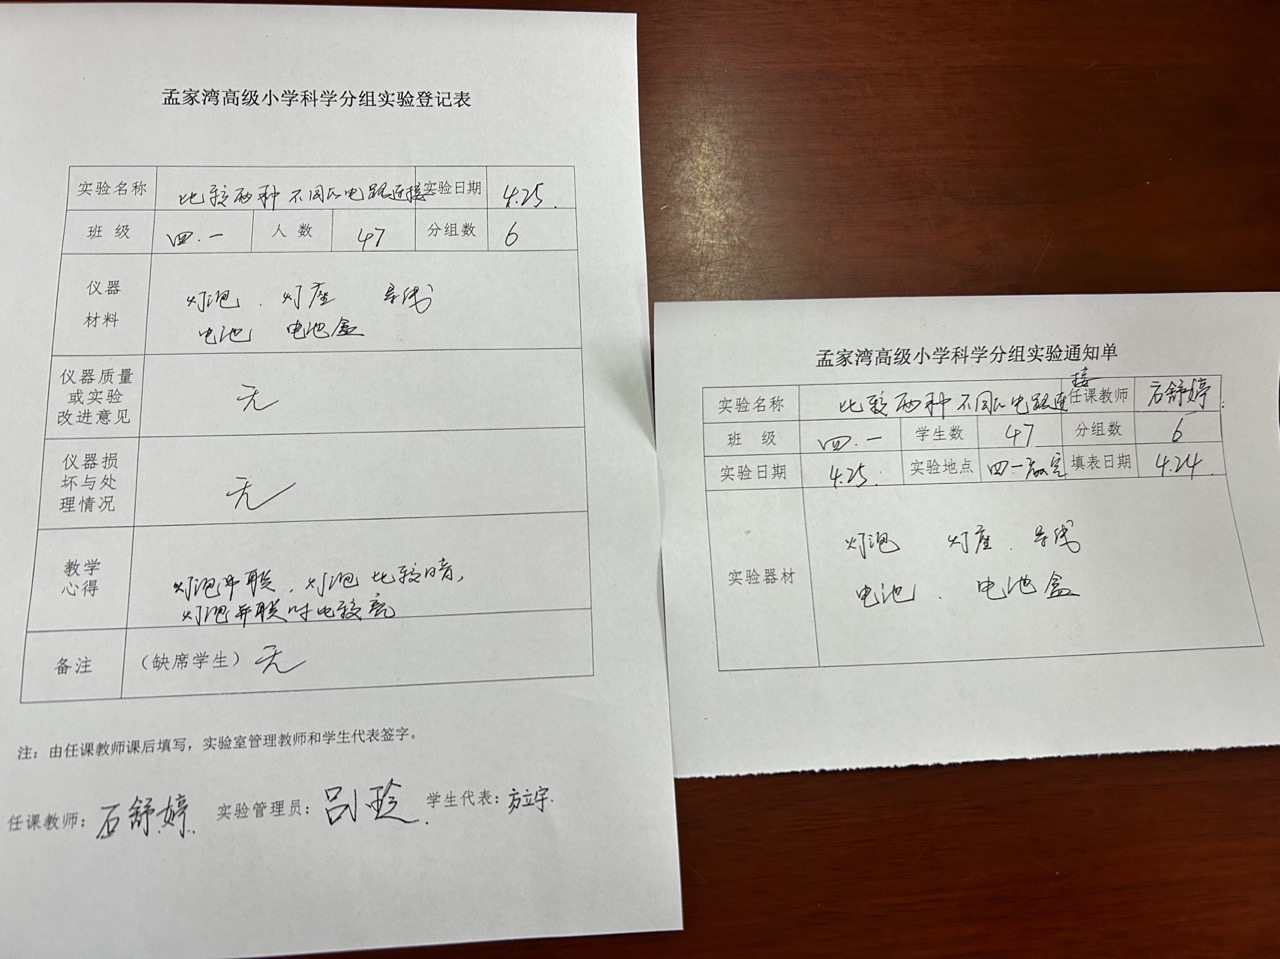 孟家湾高级小学科学分组实验登记表
实验名称 比较两种不同的电路连接 实验日期 4.25.
班 级 四.一 人 数 47 分组数 6
仪器
材料
灯泡 . 灯座 导线
电池 电池盒
仪器质量
或实验
改进意见
无
仪器损
坏与处
理情况
无
教学
心得
灯泡串联,灯泡比较暗,
灯泡并联时电较亮
备注 (缺席学生) 无
注:由任课教师课后填写,实验室管理教师和学生代表签字。
任课教师: 石舒婷. 实验管理员: 学生代表: 方立宇.
孟家湾高级小学科学分组实验通知单
实验名称 比较两种不同的电路连接 任课教师 石舒婷
班 级 四.一 学生数 47 分组数 6
实验日期 4.25. 实验地点 四一教室 填表日期 4.24.
实验器材
灯泡 灯座 . 导线
电池 . 电池盒